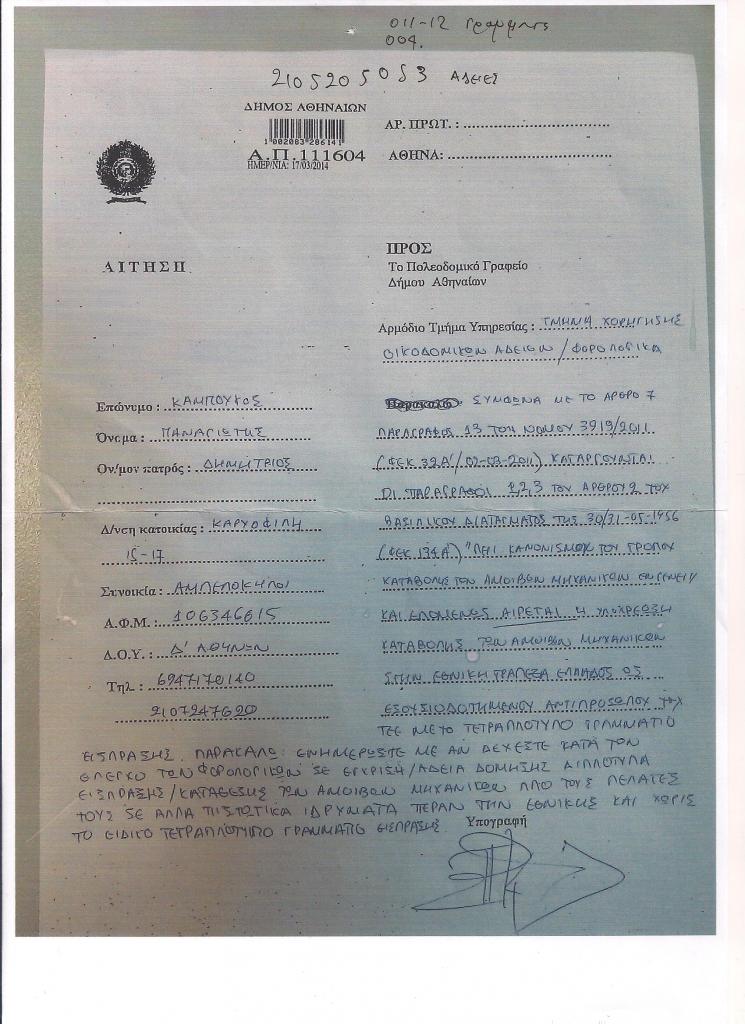 011-12
004.
2105205053 ΑΔΕΙΕΣ
ΔΗΜΟΣ ΑΘΗΝΑΙΩΝ
1 002083 286141
Α.Π.111604
ΗΜΕΡ/ΝΙΑ: 17/03/2014
ΑΡ. ΠΡΩΤ. :
ΑΘΗΝΑ:
ΑΙΤΗΣΗ
ΠΡΟΣ
Το Πολεοδομικό Γραφείο
Δήμου Αθηναίων
Αρμόδιο Τμήμα Υπηρεσίας : ΤΜΗΜΑ ΧΟΡΗΓΗΣΗΣ
ΟΙΚΟΔΟΜΙΚΩΝ ΑΔΕΙΩΝ / ΦΟΡΟΛΟΓΙΚΑ
Επώνυμο :
Όνομα : ΠΑΝΑΓΙΩΤΗΣ
Ον/μον πατρός : ΔΗΜΗΤΡΙΟΣ
Δ/νση κατοικίας : ΚΑΡΥΟΦΙΛΗ
15-17
Συνοικία : ΑΜΠΕΛΟΚΗΠΟΙ
Α.Φ.Μ. : 106346615
Δ.Ο.Υ. : Δ' ΑΘΗΝΩΝ
Τηλ. : 6947170140
2107247620
Παρακαλώ: ΣΥΜΦΩΝΑ ΜΕ ΤΟ ΑΡΘΡΟ 7
ΠΑΡΑΓΡΑΦΟΣ 13 ΤΟΥ ΝΟΜΟΥ 3919/2011
(ΦΕΚ 32Α'/02-03-2011) ΚΑΤΑΡΓΟΥΝΤΑΙ
ΟΙ ΠΑΡΑΓΡΑΦΟΙ 1,2,3 ΤΟΥ ΑΡΘΡΟΥ 2 ΤΟΥ
ΒΑΣΙΛΙΚΟΥ ΔΙΑΤΑΓΜΑΤΟΣ ΤΗΣ 30/31-05-1956
(ΦΕΚ 134Α') "ΠΕΡΙ ΚΑΝΟΝΙΣΜΟΥ ΤΟΥ ΤΡΟΠΟΥ
ΚΑΤΑΒΟΛΗΣ ΤΩΝ ΑΜΟΙΒΩΝ ΜΗΧΑΝΙΚΩΝ ΕΝ ΓΕΝΕΙ"
ΚΑΙ ΕΠΟΜΕΝΩΣ ΑΙΡΕΤΑΙ Η ΥΠΟΧΡΕΩΣΗ
ΚΑΤΑΒΟΛΗΣ ΤΩΝ ΑΜΟΙΒΩΝ ΜΗΧΑΝΙΚΩΝ
ΣΤΗΝ ΕΘΝΙΚΗ ΤΡΑΠΕΖΑ ΕΛΛΑΔΟΣ ΩΣ
ΕΞΟΥΣΙΟΔΟΤΗΜΕΝΟΥ ΑΝΤΙΠΡΟΣΩΠΟΥ ΤΟΥ
ΤΕΕ ΜΕ ΤΟ ΤΕΤΡΑΠΛΟΤΥΠΟ ΓΡΑΜΜΑΤΙΟ
ΕΙΣΠΡΑΞΗΣ. ΠΑΡΑΚΑΛΩ: ΕΝΗΜΕΡΩΣΤΕ ΜΕ ΑΝ ΔΕΧΕΣΤΕ ΚΑΤΑ ΤΟΝ
ΕΛΕΓΧΟ ΤΩΝ ΦΟΡΟΛΟΓΙΚΩΝ ΣΕ ΕΓΚΡΙΣΗ/ΑΔΕΙΑ ΔΟΜΗΣΗΣ ΔΙΠΛΟΤΥΠΑ
ΕΙΣΠΡΑΞΗΣ/ΚΑΤΑΘΕΣΗΣ ΤΩΝ ΑΜΟΙΒΩΝ ΜΗΧΑΝΙΚΩΝ ΑΠΟ ΤΟΥΣ ΠΕΛΑΤΕΣ
ΤΟΥΣ ΣΕ ΑΛΛΑ ΠΙΣΤΩΤΙΚΑ ΙΔΡΥΜΑΤΑ ΠΕΡΑΝ ΤΗΝ ΕΘΝΙΚΗΣ ΚΑΙ ΧΩΡΙΣ
ΤΟ ΕΙΔΙΚΟ ΤΕΤΡΑΠΛΟΤΥΠΟ ΓΡΑΜΜΑΤΙΟ ΕΙΣΠΡΑΞΗΣ.
Υπογραφή